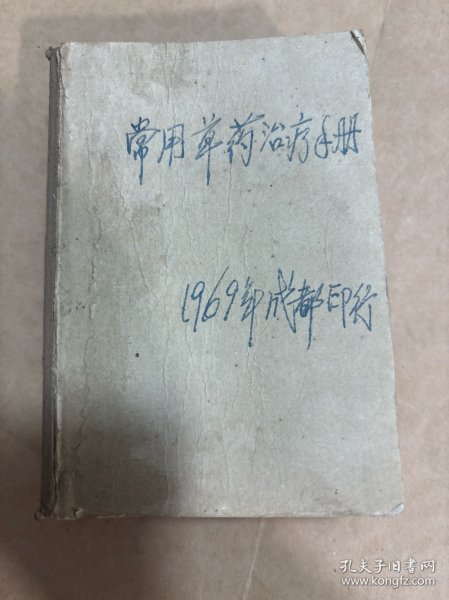 常用草药治疗手册
1969年成都印行
孔夫子旧书网
www.kongfz.com